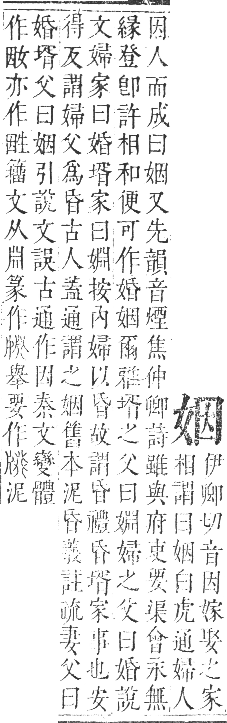 姻
伊卿切音因嫁娶之家
相謂曰姻白虎通婦人
因人而成曰姻又先韻音煙焦仲卿詩雖與府吏要渠會永無
緣登即許相和便可作婚姻爾雅壻之父曰婣婦之父曰婚說
文婦家曰婚壻家曰婣按內婦以昏故謂昏禮昏壻家事也安
得反謂婦父爲昏古人蓋通謂之姻舊本泥昏義註疏妻父曰
婚壻父曰姻引說文誤古通作因秦文變體
作亦作籀文从篆作舉要作泥